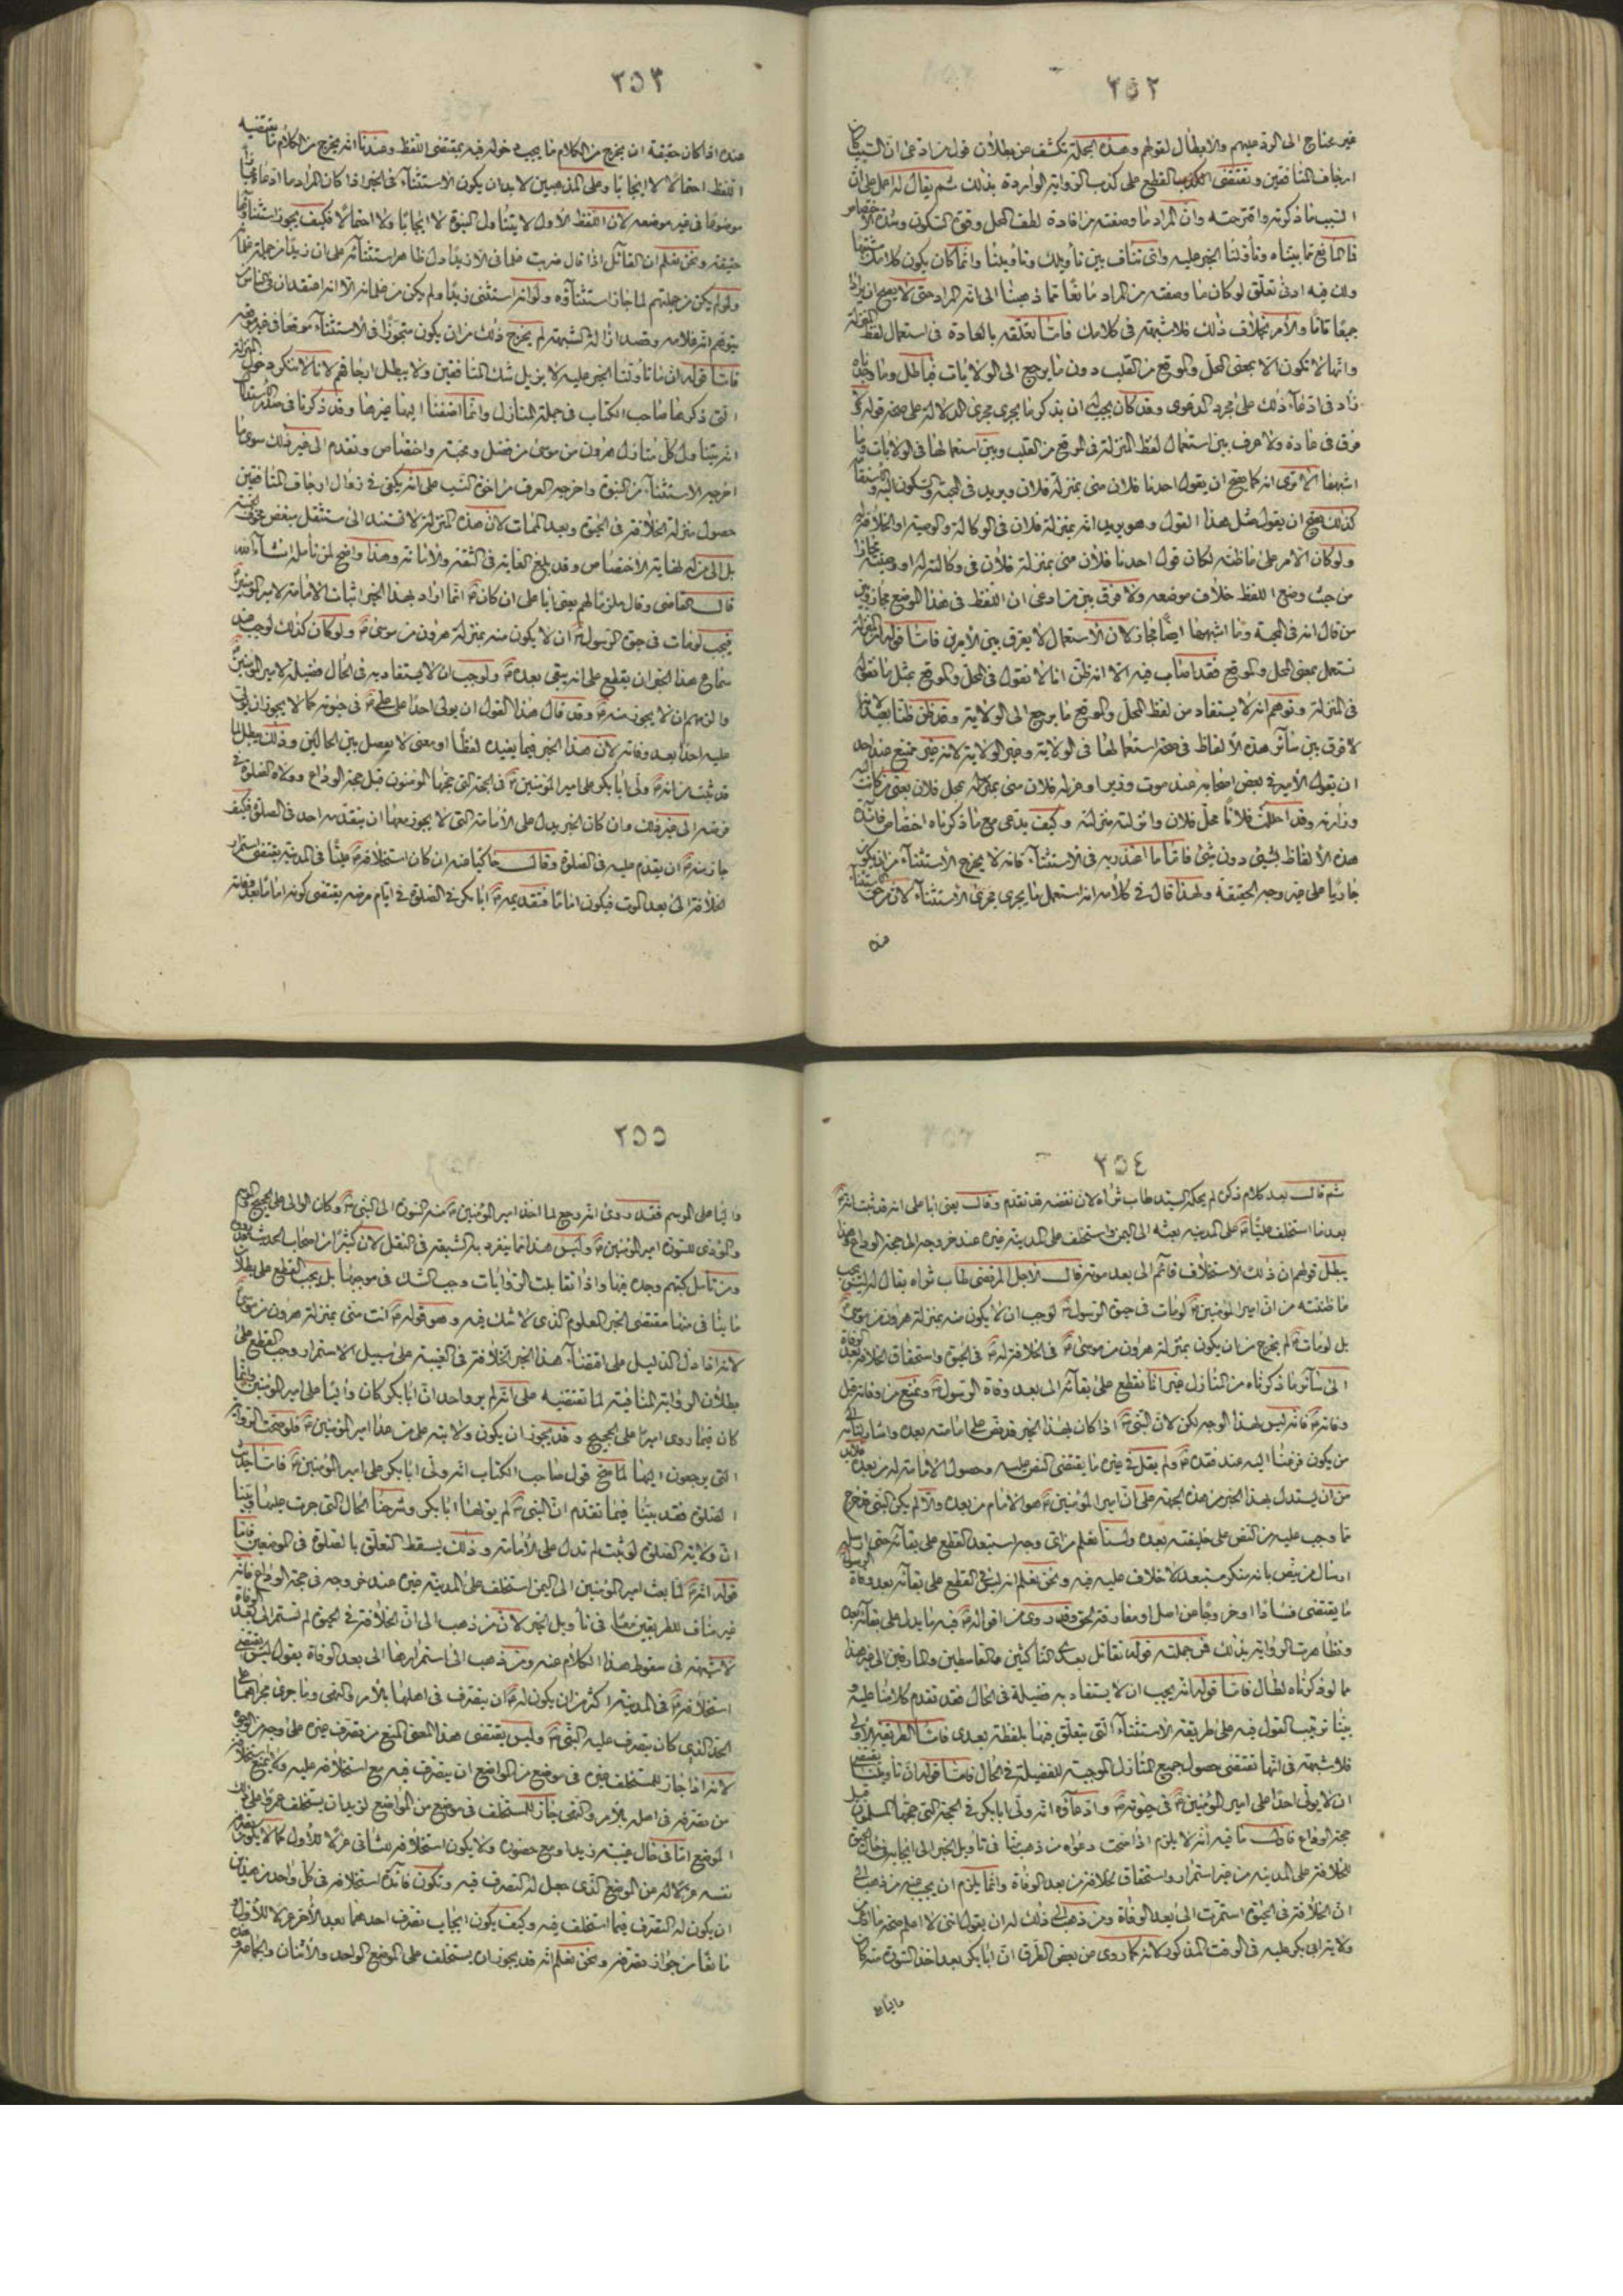 ٢٥٢
غير محتاج الى الرد عليهم والابطال لقولهم وهذه الجملة تكشف عن بطلان قول من ادعى ان السبب كان
ارجاف المنافقين وتقتضى القطع على كذب الرواية الواردة بذلك ثم يقال له اعمل على ان
السبب ما ذكرته واقترحته وان المراد ما وصفته من افادة لطف المحل وقوة السكون وشدة الاختصاص
فما المانع مما بيناه وتأولنا الخبر عليه واى تناف بين تأويلك وتأويلنا وانما كان يكون كلامك مشتبها
ولك فيه ادنى تعلق لو كان ما وصفته من المراد مانعا مما ذهبنا الى انه المراد حتى لا يصح ان يرادا
جميعا فاما والامر بخلاف ذلك فلا شبهة فى كلامك فاما تعلقه بالعادة فى استعمال لفظ المنزلة
وانها لا تكون الا بمعنى المحل والموقع من القلب دون ما يرجع الى الولايات فباطل وما وجدناه
زاد فى ادعاء ذلك على مجرد الدعوى وقد كان يجب ان يذكر ما يجرى مجرى الدلالة على صحة قوله ولا
فرق فى عادة ولا عرف بين استعمال لفظ المنزلة فى الموقع من القلب وبين استعمالها فى الولايات وما
اشبهها الا ترى انه كما يصح ان يقول احدنا فلان منى بمنزلة فلان ويريد فى المحبة والسكون اليه
كذلك يصح ان يقول مثل هذا القول وهو يريد انه بمنزلة فلان فى الوكالة والوصية او الخلافة له
ولو كان الامر على ما ظنه لكان قول احدنا فلان منى بمنزلة فلان فى وكالته له او وصيته مجازا
من حيث وضع اللفظ خلاف موضعه ولا فرق بين من ادعى ان اللفظ فى هذا الموضع مجاز وبين
من قال انه فى المحبة وما اشبهها ايضا مجاز لان الاستعمال لا يفرق بين الامرين فاما قوله ان المنزلة
تستعمل بمعنى المحل والموقع فقد اصاب فيه الا انه ظن انا لا نقول فى المحل والموقع بمثل ما نقوله
فى المنزلة وتوهم انه لا يستفاد من لفظ المحل والموقع ما يرجع الى الولاية وقد ظن ظنا بعيدا لانه
لا فرق بين سائر هذه الالفاظ فى صحة استعمالها فى الولاية وغير الولاية لانه غير ممتنع عند احد
ان يقول الامير فى بعض اصحابه عند موت وزيره او عزله فلان منى بمحل فلان يعنى من كانت اليه
وزارته وقد احللت فلانا محل فلان وانزلته منزلته وكيف يدعى مع ما ذكرناه اختصاص فائدة
هذه الالفاظ بشيئ دون شئ فاما ما اعتذر به فى الاستثناء فانه لا يخرج الاستثناء من ان يكون
جاريا على غير وجه الحقيقة ولهذا قال فى كلامه انه استعمل ما يجرى مجرى الاستثناء لان من حق الاستثناء
عنده
٢٥٣
عنده اذا كان حقيقة ان يخرج من الكلام ما يجب دخوله فيه بمقتضى اللفظ وعندنا انه يخرج من الكلام ما يقتضيه
اللفظ احتمالا لا ايجابا وعلى المذهبين لابد ان يكون الاستثناء فى الخبر اذا كان المراد ما ادعاه
موضوعا فى غير موضعه لان اللفظ الاول لا يتناول النبوة لا ايجابا ولا احتمالا فكيف يجوز استثناؤها
حقيقة ونحن نعلم ان القائل اذا قال ضربت غلمانى الا زيدا دل ظاهر استثنائه على ان زيدا من جملة غلمانه
ولو لم يكن من جملتهم لما جاز استثناؤه ولو انه استثنى زيدا ولم يكن من غلمانه الا انه اعتقد ان فى الناس
من يتوهم انه غلامه وقصد ازالة الشبهة لم يخرج ذلك من ان يكون متجوزا فى الاستثناء موقعا فى غير موقعه
فاما قوله ان ما تأولنا الخبر عليه لا يزيل شك المنافقين ولا يبطل ارجافهم لانا لا ننكر دخول المنزلة
التى ذكرها صاحب الكتاب فى جملة المنازل وانما اضفنا اليها غيرها وقد ذكرنا فى
انه يتناول كل منازل هرون من موسى من فضل ومحبة واختصاص وتقدم الى غير ذلك سوى ما
اخرجه الاستثناء من النبوة واخرجه العرف من اخوة النسب على انه يكفى فى زوال ارجاف المنافقين
حصول منزلة الخلافة فى الحيوة وبعد الممات لان هذه المنزلة لا تستند الى مستثقل مبغض مخوف
بل الى من له نهاية الاختصاص وقد بلغ الغاية فى الثقة والامانة وهذا واضح لمن تأمله ان شاء الله
قال القاضى وقال ملزما لهم يعنى ابا على ان كان ع انما اراد بهذا الخبر اثبات الامامة لامير المؤمنين ع
فيجب لو مات فى حيوة الرسول ص ان لا يكون منه بمنزلة هرون من موسى ع ولو كان كذلك لوجب عند
سماع هذا الخبر ان يقطع على انه يبقى بعده ص ولوجب ان لا يستفاد به فى الحال فضيلة لامير المؤمنين ع
والزمهم ان لا يجوز منه ص وقد قال هذا القول ان يولى احدا على على ع فى حيوته كما لا يجوز ان يولى
عليه احدا بعد وفاته لان هذا الخبر فيما يفيده لفظا او معنى لا يفصل بين الحالين وذلك يبطل لما
قد ثبت من انه ص ولى ابا بكر على امير المؤمنين ع فى الحجة التى حجها المؤمنون قبل حجة الوداع وولاه الصلوة فى
مرضه الى غير ذلك وان كان الخبر يدل على الامامة التى لا يجوز معها ان يتقدمه احد فى الصلوة فكيف
جاز منه ص ان يقدم عليه فى الصلوة وقال حاكيا عنه ان كان استخلافه ص عليا فى المدينة يقتضى استمرار
الخلافة الى بعد الموت فيكون اماما فتقديمه ص ابا بكر فى الصلوة فى ايام مرضه يقتضى كونه اماما بعد وفاته
٢٥٤
ثم قال بعد كلام ذكره لم يحكه السيد طاب ثراه لان نقضه قد تقدم وقال يعنى ابا على انه قد ثبت انه ص
بعد ما استخلف عليا ع على المدينة بعثه الى اليمن واستخلف على المدينة غيره عند خروجه الى حجة الوداع وهذا
يبطل قولهم ان ذلك الاستخلاف قائم الى بعد موته قال الاجل المرتضى طاب ثراه يقال له ليس يجب
ما ظننته من ان امير المؤمنين ع لو مات فى حيوة الرسول ص لوجب ان لا يكون منه بمنزلة هرون من موسى ع
بل لو مات ع لم يخرج من ان يكون بمنزلة هرون من موسى ع فى الخلافة له ص فى الحيوة واستحقاق الخلافة بعد الوفاة
الى سائر ما ذكرناه من المنازل غير انا نقطع على بقائه الى بعد وفاة الرسول ص ونمنع من وفاته قبل
وفاته ص فانه ليس لهذا الوجه لكن لان النبى ص اذا كان بهذا الخبر قد نص على امامته بعده واشار لنا به الى
من يكون فزعنا اليه عند فقده ص ولم يقل فى غيره ما يقتضى النص عليه وحصول الامامة له من بعده فلابد
من ان يستدل بهذا الخبر من هذه الجهة على ان امير المؤمنين ع هو الامام من بعده والا لم يكن النبى ص قد خرج
مما وجب عليه من النص على خليفته بعده ولسنا نعلم من اى وجه استبعد القطع على بقائه حتى ارسله
ارسال من يشق بانه منكر مستبعد لا خلاف عليه فيه ونحن نعلم انه ليس فى القطع على بقائه بعد وفاة الرسول
ما يقتضى فسادا او خروجا من اصل او مفارقة الحق وقد روى من اقواله ص فيه ما يدل على بقائه بعده
وتظاهرت الرواية بذلك فمن جملته قوله تقاتل بعدى الناكثين والقاسطين والمارقين الى غير هذا
مما لو ذكرناه لطال فاما قوله انه يجب ان لا يستفاد به فضيلة فى الحال فقد تقدم كلامنا عليه و
بينا ترتيب القول فيه على طريقة الاستثناء التى يتعلق فيها بلفظة بعدى فاما الطريقة الاولى
فلا شبهة فى انها تقتضى حصول جميع المنازل الموجبة للفضيلة فى الحال فاما قوله ان تأويلنا يقتضى
ان لا يولى احدا على امير المؤمنين ع فى حيوته ص وادعاؤه انه ولى ابا بكر فى الحجة التى حجها المسلمون قبل
حجة الوداع فاول ما فيه انه لا يلزم اذا صحت دعواه من ذهب منا فى تأويل الخبر الى ايجابه فى حال الحيوة
الخلافة على المدينة من غير استمرار واستحقاق للخلافة من بعد الوفاة وانما يلزم ان يجيب عنه من ذهب الى
ان الخلافة فى الحيوة استمرت الى بعد الوفاة ومن ذهب الى ذلك له ان يقول اننى لا اعلم صحة ما ادعى من
ولاية ابى بكر عليه فى الوقت المذكور لانه كما روى من بعض الطرق ان ابا بكر بعد اخذ السورة منه كان
واليا على
٢٥٥
واليا على الموسم فقد روى انه رجع لما اخذ امير المؤمنين ع منه السورة الى النبى ص وكان الوالى على الحجيج
والمؤدى للسورة امير المؤمنين ع وليس هذا مما ينفرد به الشيعة فى النقل لان كثيرا من اصحاب الحديث قد رووه
ومن تأمل كتبهم وجده فيها واذا تقابلت الروايات وجب الشك فى موجبها بل يجب القطع على بطلان
ما ينافى منها مقتضى الخبر المعلوم الذى لا شك فيه وهو قوله ص انت منى بمنزلة هرون من موسى ع
لانه اذا دل الدليل على اقتضاء هذا الخبر لخلافته فى الغيبة على سبيل الاستمرار وجب القطع على
بطلان الرواية المنافية لما تقتضيه على انه لم يرو احد ان ابا بكر كان واليا على امير المؤمنين وانما
كان فيما روى اميرا على الحجيج وقد يجوز ان يكون ولايته على من عدا امير المؤمنين ع فلو صحت الرواية
التى يرجعون اليها لما صح قول صاحب الكتاب انه ولى ابا بكر على امير المؤمنين ع فاما حديث
الصلوة فقد بينا فيما تقدم ان النبى ص لم يولها ابا بكر وشرحنا الحال التى جرت عليها وبينا
ان ولاية الصلوة لو ثبت لم تدل على الامامة وذلك يسقط التعلق بالصلوة فى الموضعين فاما
قوله انه ص لما بعث امير المؤمنين الى اليمن استخلف على المدينة غيره عند خروجه فى حجة الوداع فانه
غير مناف للطريقين معا فى تأويل الخبر لان من ذهب الى ان الخلافة فى الحيوة لم تستمر الى بعد الوفاة
لا شبهة فى سقوط هذا الكلام عنه ومن ذهب الى استمرارها الى بعد الوفاة يقول ليس يقتضى
استخلافه ع فى المدينة اكثر من ان يكون له ع ان يتصرف فى اهلها بالامر والنهى وما جرى مجراهما على
الحد الذى كان يتصرف عليه النبى ص وليس يقتضى هذا المعنى المنع من تصرف غيره على وجه من الوجوه
لانه اذا جاز للمستخلف غيره فى موضع من المواضع ان يتصرف فيه مع استخلافه عليه ولا يمنع استخلافه
من تصرفه فى اهله بالامر والنهى جاز للمستخلف فى موضع من المواضع لزيد ان يستخلف عمرا على ذلك
الموضع اما فى حال غيبة زيد او مع حضوره ولا يكون استخلافه للثانى عزلا للاول كما لا يكون تصرفه
نفسه عزلا له من الموضع الذى جعل له التصرف فيه وتكون فائدة استخلافه فى كل واحد من هذين
ان يكون له التصرف فيما استخلف فيه وكيف يكون ايجاب تصرف احدهما بعد الاخر عزلا للاول او
مانعا من جواز تصرفه ونحن نعلم انه قد يجوز ان يستخلف على الموضع الواحد والاثنان والجماعة